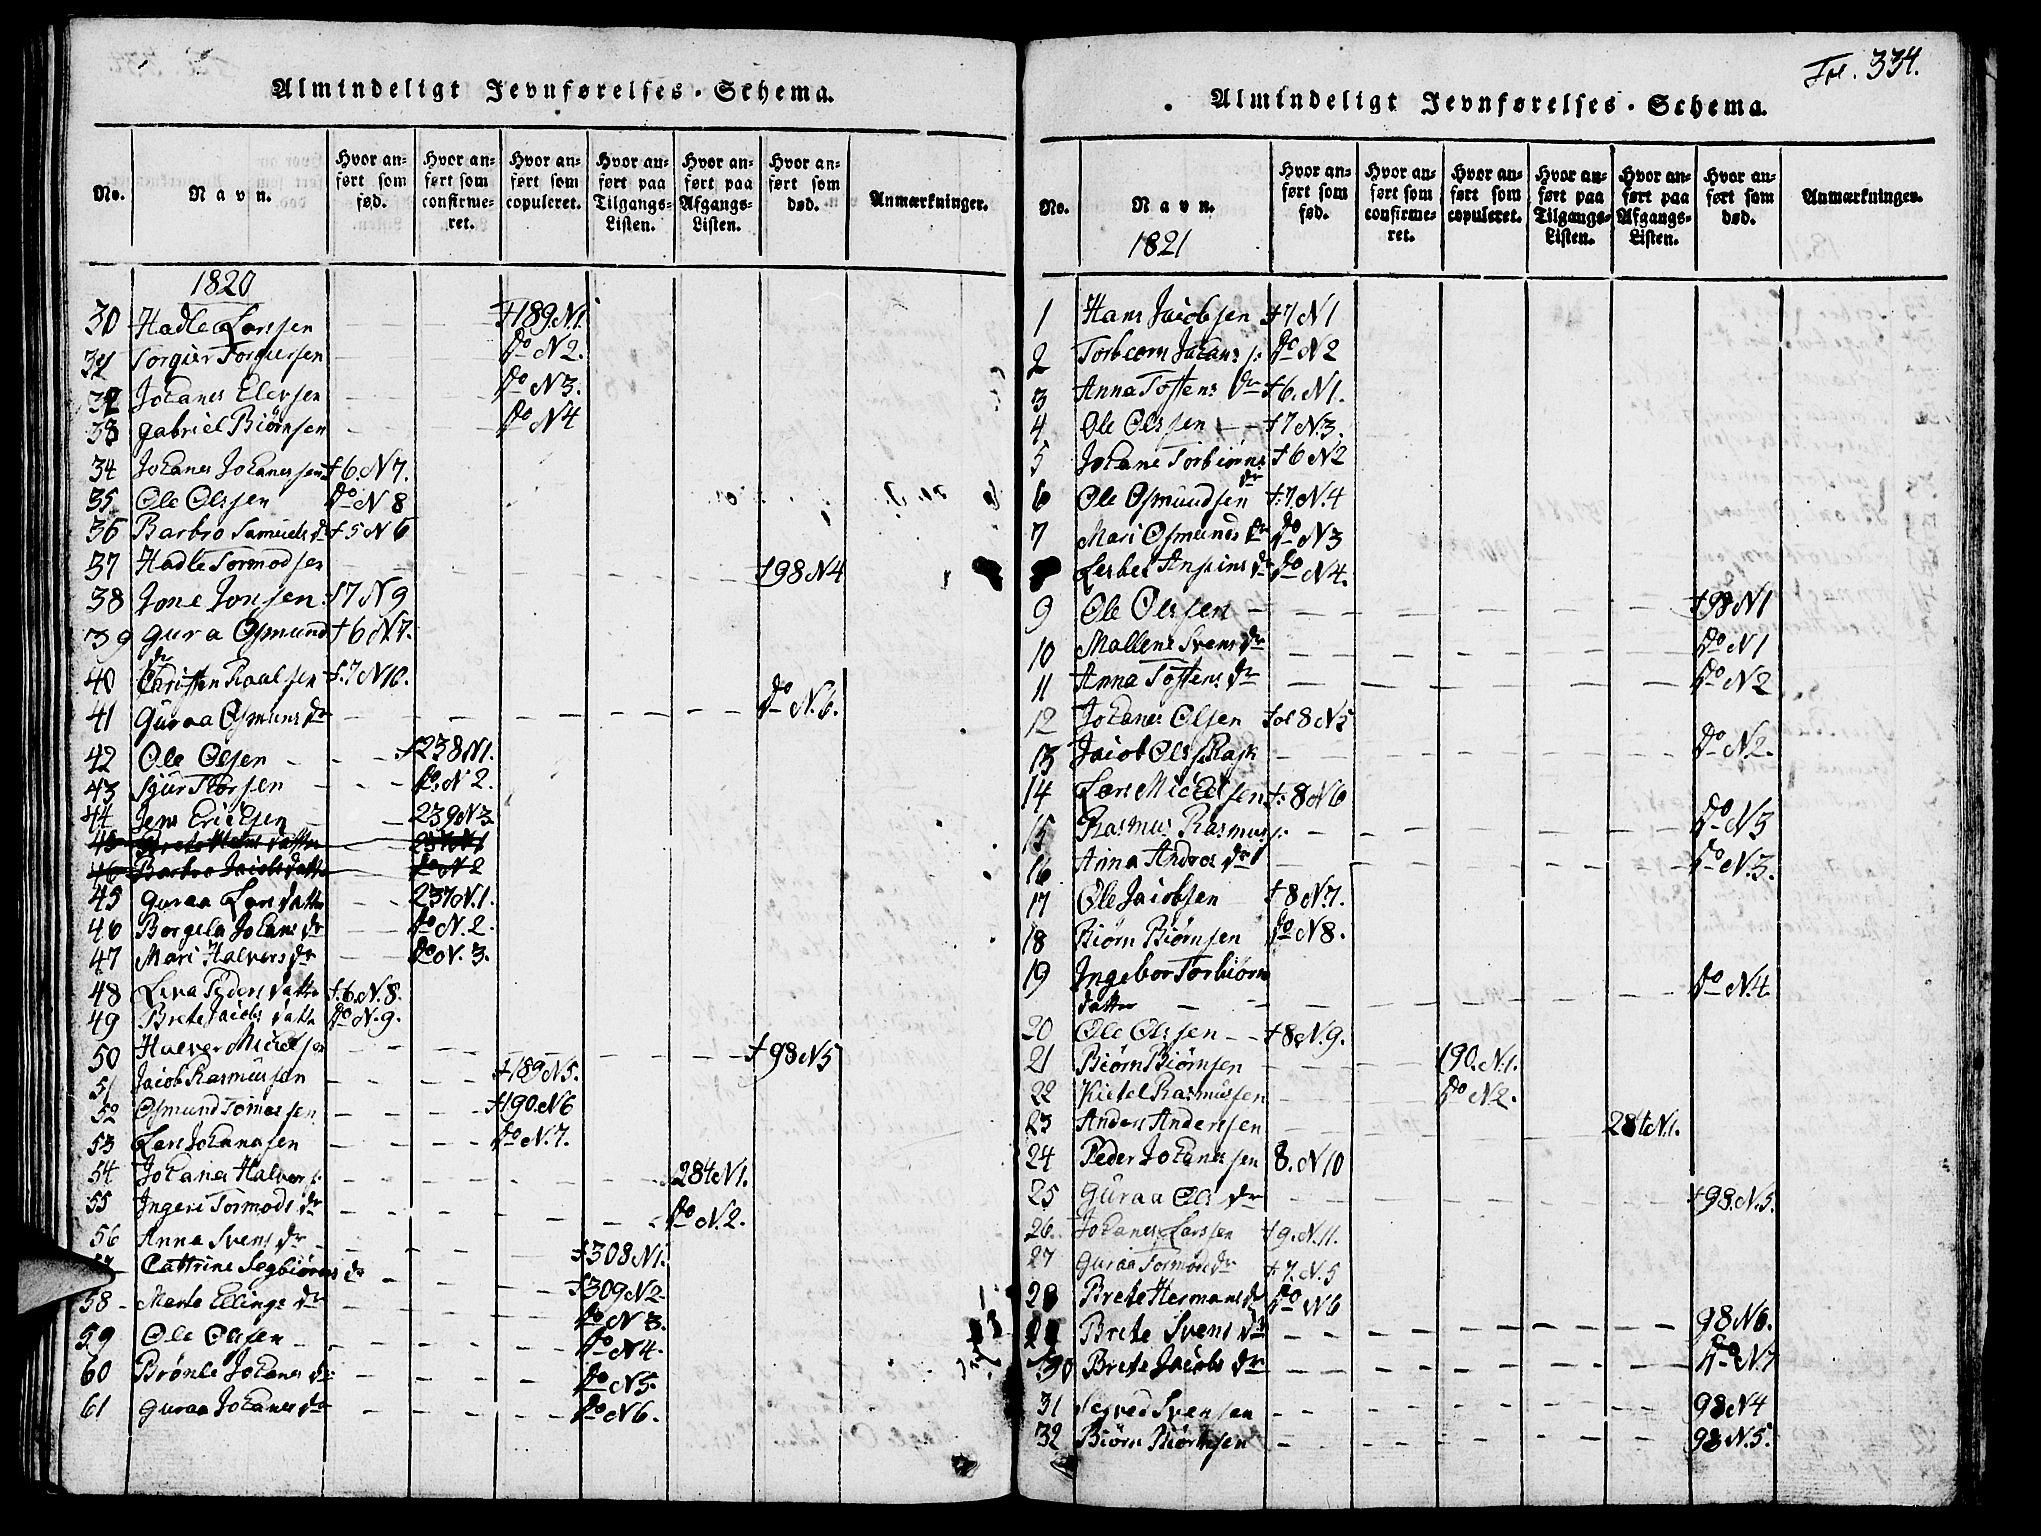 Almindeligt Jevnførelses-Schema.
No.
Navn.
Hvor anført som fød.
Hvor anført som confirmeret.
Hvor anført som copuleret.
Hvor anført paa Tilgangs-Listen.
Hvor anført paa Afgangs-Listen.
Hvor anført som død.
Anmærkninger.
1820
30 Hadle Larssen f 189 N1.
31 Torgier Torgiersen do N2.
32 Johanes Elevsen do N3.
33 Gabriel Biørnsen do N4
34 Johanes Johanessen f 6. N7.
35 Ole Olssen do N8
36 Barbro Samuels dr f 5 N6
37 Hadle Tormodsen f 98 N4
38 Jone Jonsen f 7 N9
39 Gura Osmunds dr f 6 N7.
40 Christen Raalsen f. 7 N10.
41 Guraa Osmuns dr do N.6.
42 Ole Olsen f 238 N1.
43 Siur Thorsen do. N2.
44 Jens Ericksen 239 N3.
46 Barbro Jacobsdatter do N2
45 Guraa Lars datter 237 N.1.
46 Borgela Johans dr do N.2.
47 Mari Halvors dr do N. 3.
48 Liva Peders datter f. 6. N.8.
49 Brete Jacobs datter do N.9.
50 Halver Mickelsen f 98 N5
51 Jacob Rasmussen f 189 N5.
52 Osmund Tomassen f 190 N6
53 Lars Johanesen do N.7.
54 Johanes Halvors s. 284 N1.
55 Ingeri Tormods dr do N.2.
56 Anna Svens dr f 308 N1.
57 Cattrine Segbiørns dr f 309 N2
58 Marte Ellings dr do N3.
59 Ole Olssen do N4.
60 Brønle Johanes dr do N5.
61 Guraa Johanes dr do N6.
Fol. 334.
Almindeligt Jevnførelses-Schema.
No.
Navn.
1821
Hvor anført som fød.
Hvor anført som confirmeret.
Hvor anført som copuleret.
Hvor anført paa Tilgangs-Listen.
Hvor anført paa Afgangs-Listen.
Hvor anført som død.
Anmærkninger.
1 Hans Jacobsen f 7 N1
2 Torbiorn Johans s. do N2
3 Anna Tostens dr f 6. N1.
4 Ole Olssen f 7 N.3.
5 Johane Torbiørns dr f 6 N2
6 Ole Osmundsen f. 7 N.4
7 Mari Osmunds dr do N3
Lisbet Ansins dr do N4.
9 Ole Olssen f 98 N1
10 Mallene Svens dr do N1
11 Anna Tostens dr do N2
12 Johanes Olsen fol 8 N5
13 Jacob Ols Rask do N2.
14 Lars Mickelsen f. 8 N6
15 Rasmus Rasmus s. do N3
16 Anna Andres dr do N.3.
17 Ole Jacobsen f 8 N.7.
18 Biørn Biørnsen do N8.
19 Ingebor Torbiørn datter do N.4.
20 Ole Olssen f 8 N.9.
21 Biørn Biørnsen 190. N.1.
22 Kittel Rasmussen do N2.
23 Anders Anderssen 284 N.1.
24 Peder Johanessen 8. N10
25 Guraa Ols dr f 98. N.5.
26 Johanes Larssen f 9. N.11.
27 Guraa Tormods dr f 7. N.5
28 Brete Hermans dr do N6
29 Brete Svens dr 98 N6.
30 Brete Jacobs dr do N7
31 Segved Svensen 98 N4
32 Biørn Biørnsen 98 N.5.